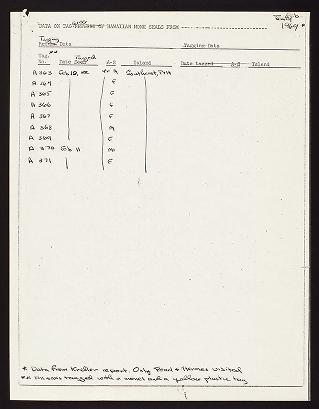 Feb
1969
DATA ON TAG RETURNS OF HAWAIIAN MONK SEALS FROM
Tagging
Return Data Tagging Data
Tag No. Date Tagged A-S Island Date Tagged A-S Island
A 363 Feb 10 Southeast, P+H
A 364 F
A 365 F
A 366 F
A 367 F
A 368 M
A 369 F
A 370 Feb 11 M
A 371 F
* Data from Kridler report. Only Pearl & Hermes visited
** Animals tagged with a monel and a yellow plastic tag